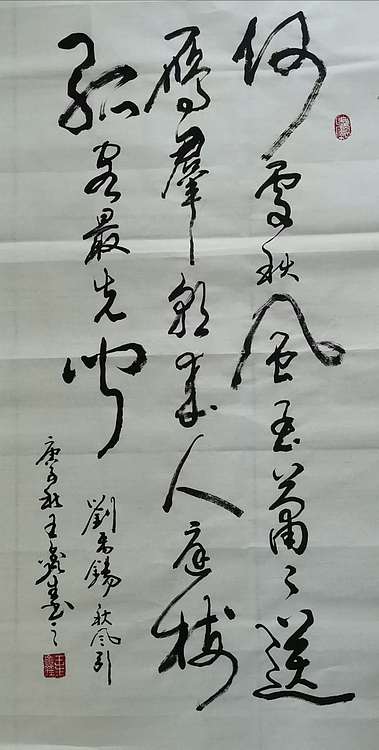 何處秋風至蕭々送
鴈羣朝來入庭樹
孤客最先聞
劉禹錫 秋風引
庚子秋王書